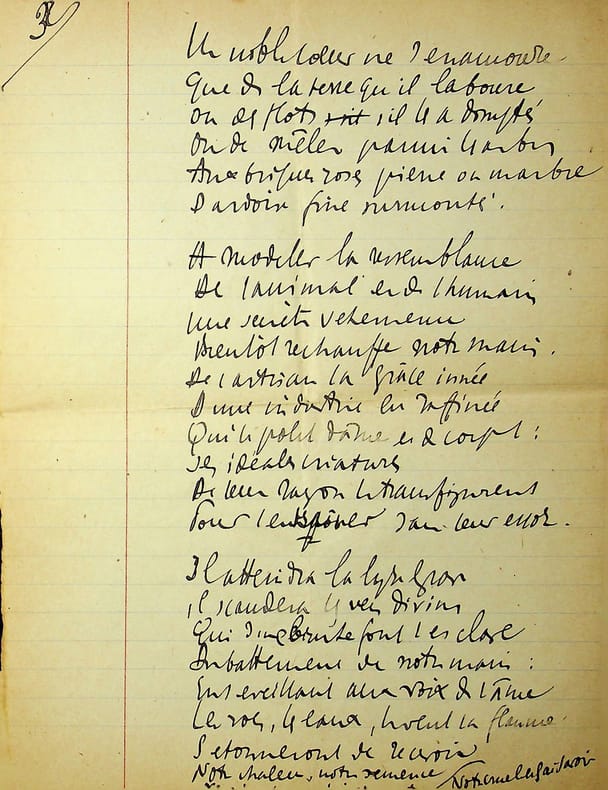 3
Un noble cœur ne s'enamoure
Que de la terre qu'il laboure
ou des flots s'il les a domptés
Ou de mêler parmi les arbres
Aux briques roses pierre ou marbre
D'ardoise fine surmontés.
A modeler la ressemblance
De l'animal et de l'humain
Une secrète véhémence
Bientôt rechauffe notre main.
De l'artisan la grâce innée
D'une industrie
Qui le polit d'âme et de corps :
Ses idéales créatures
De leur rayon le transfigurent
Pour l'enlever dans leur essor.
Il attendra la lyre grave
il scandera les vers divins
Qui d'une brute font l'esclave
Au battement de notre main :
En s'éveillant aux voix de l'âme
Les rocs, les eaux, le vent la flamme
S'étonneront de recevoir
Notre chaleur, notre semence
Notre